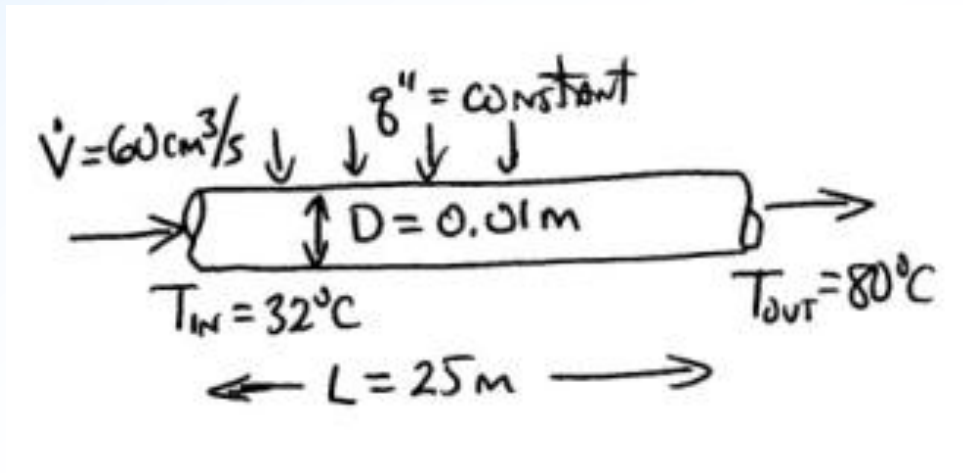 V̇=60cm³/s
q"= constant
D=0.01m
T_IN = 32°C
T_OUT=80°C
L=25m